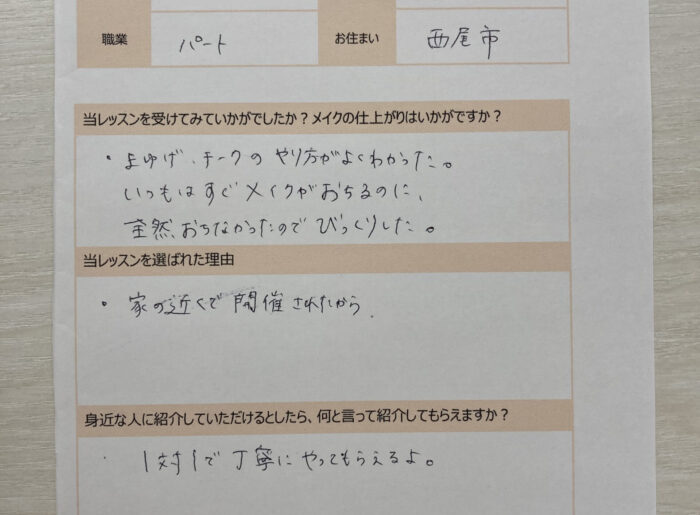 職業 パート お住まい 西尾市
当レッスンを受けてみていかがでしたか？メイクの仕上がりはいかがですか？
・まゆげ、チークの やり方がよくわかった。
いつもはすぐメイクがおちるのに、
全然、おちなかったのでびっくりした。
当レッスンを選ばれた理由
・家の近くで開催されたから.
身近な人に紹介していただけるとしたら、何と言って紹介してもらえますか？
・1対1で丁寧にやってもらえるよ。